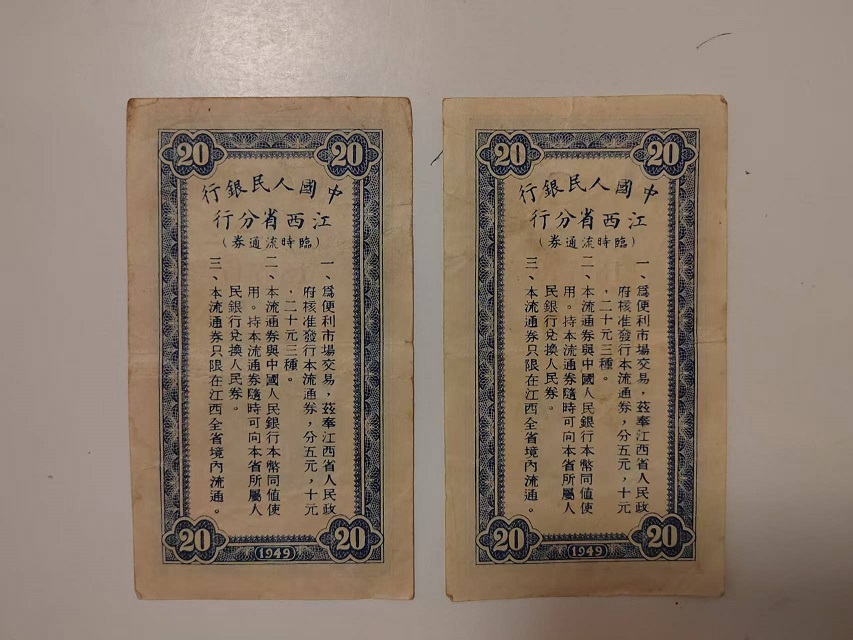 20 20
中國人民銀行
江西省分行
(臨時流通券)
一、爲便利市場交易，茲奉江西省人民政
府核准發行本流通券，分五元，十元
，二十元三種。
二、本流通券與中國人民銀行本幣同値使
用。持本流通券隨時可向本省所屬人
民銀行兌換人民券。
三、本流通券只限在江西全省境內流通。
20 1949 20
20 20
中國人民銀行
江西省分行
(臨時流通券)
一、爲便利市場交易，茲奉江西省人民政
府核准發行本流通券，分五元，十元
，二十元三種。
二、本流通券與中國人民銀行本幣同値使
用。持本流通券隨時可向本省所屬人
民銀行兌換人民券。
三、本流通券只限在江西全省境內流通。
20 1949 20